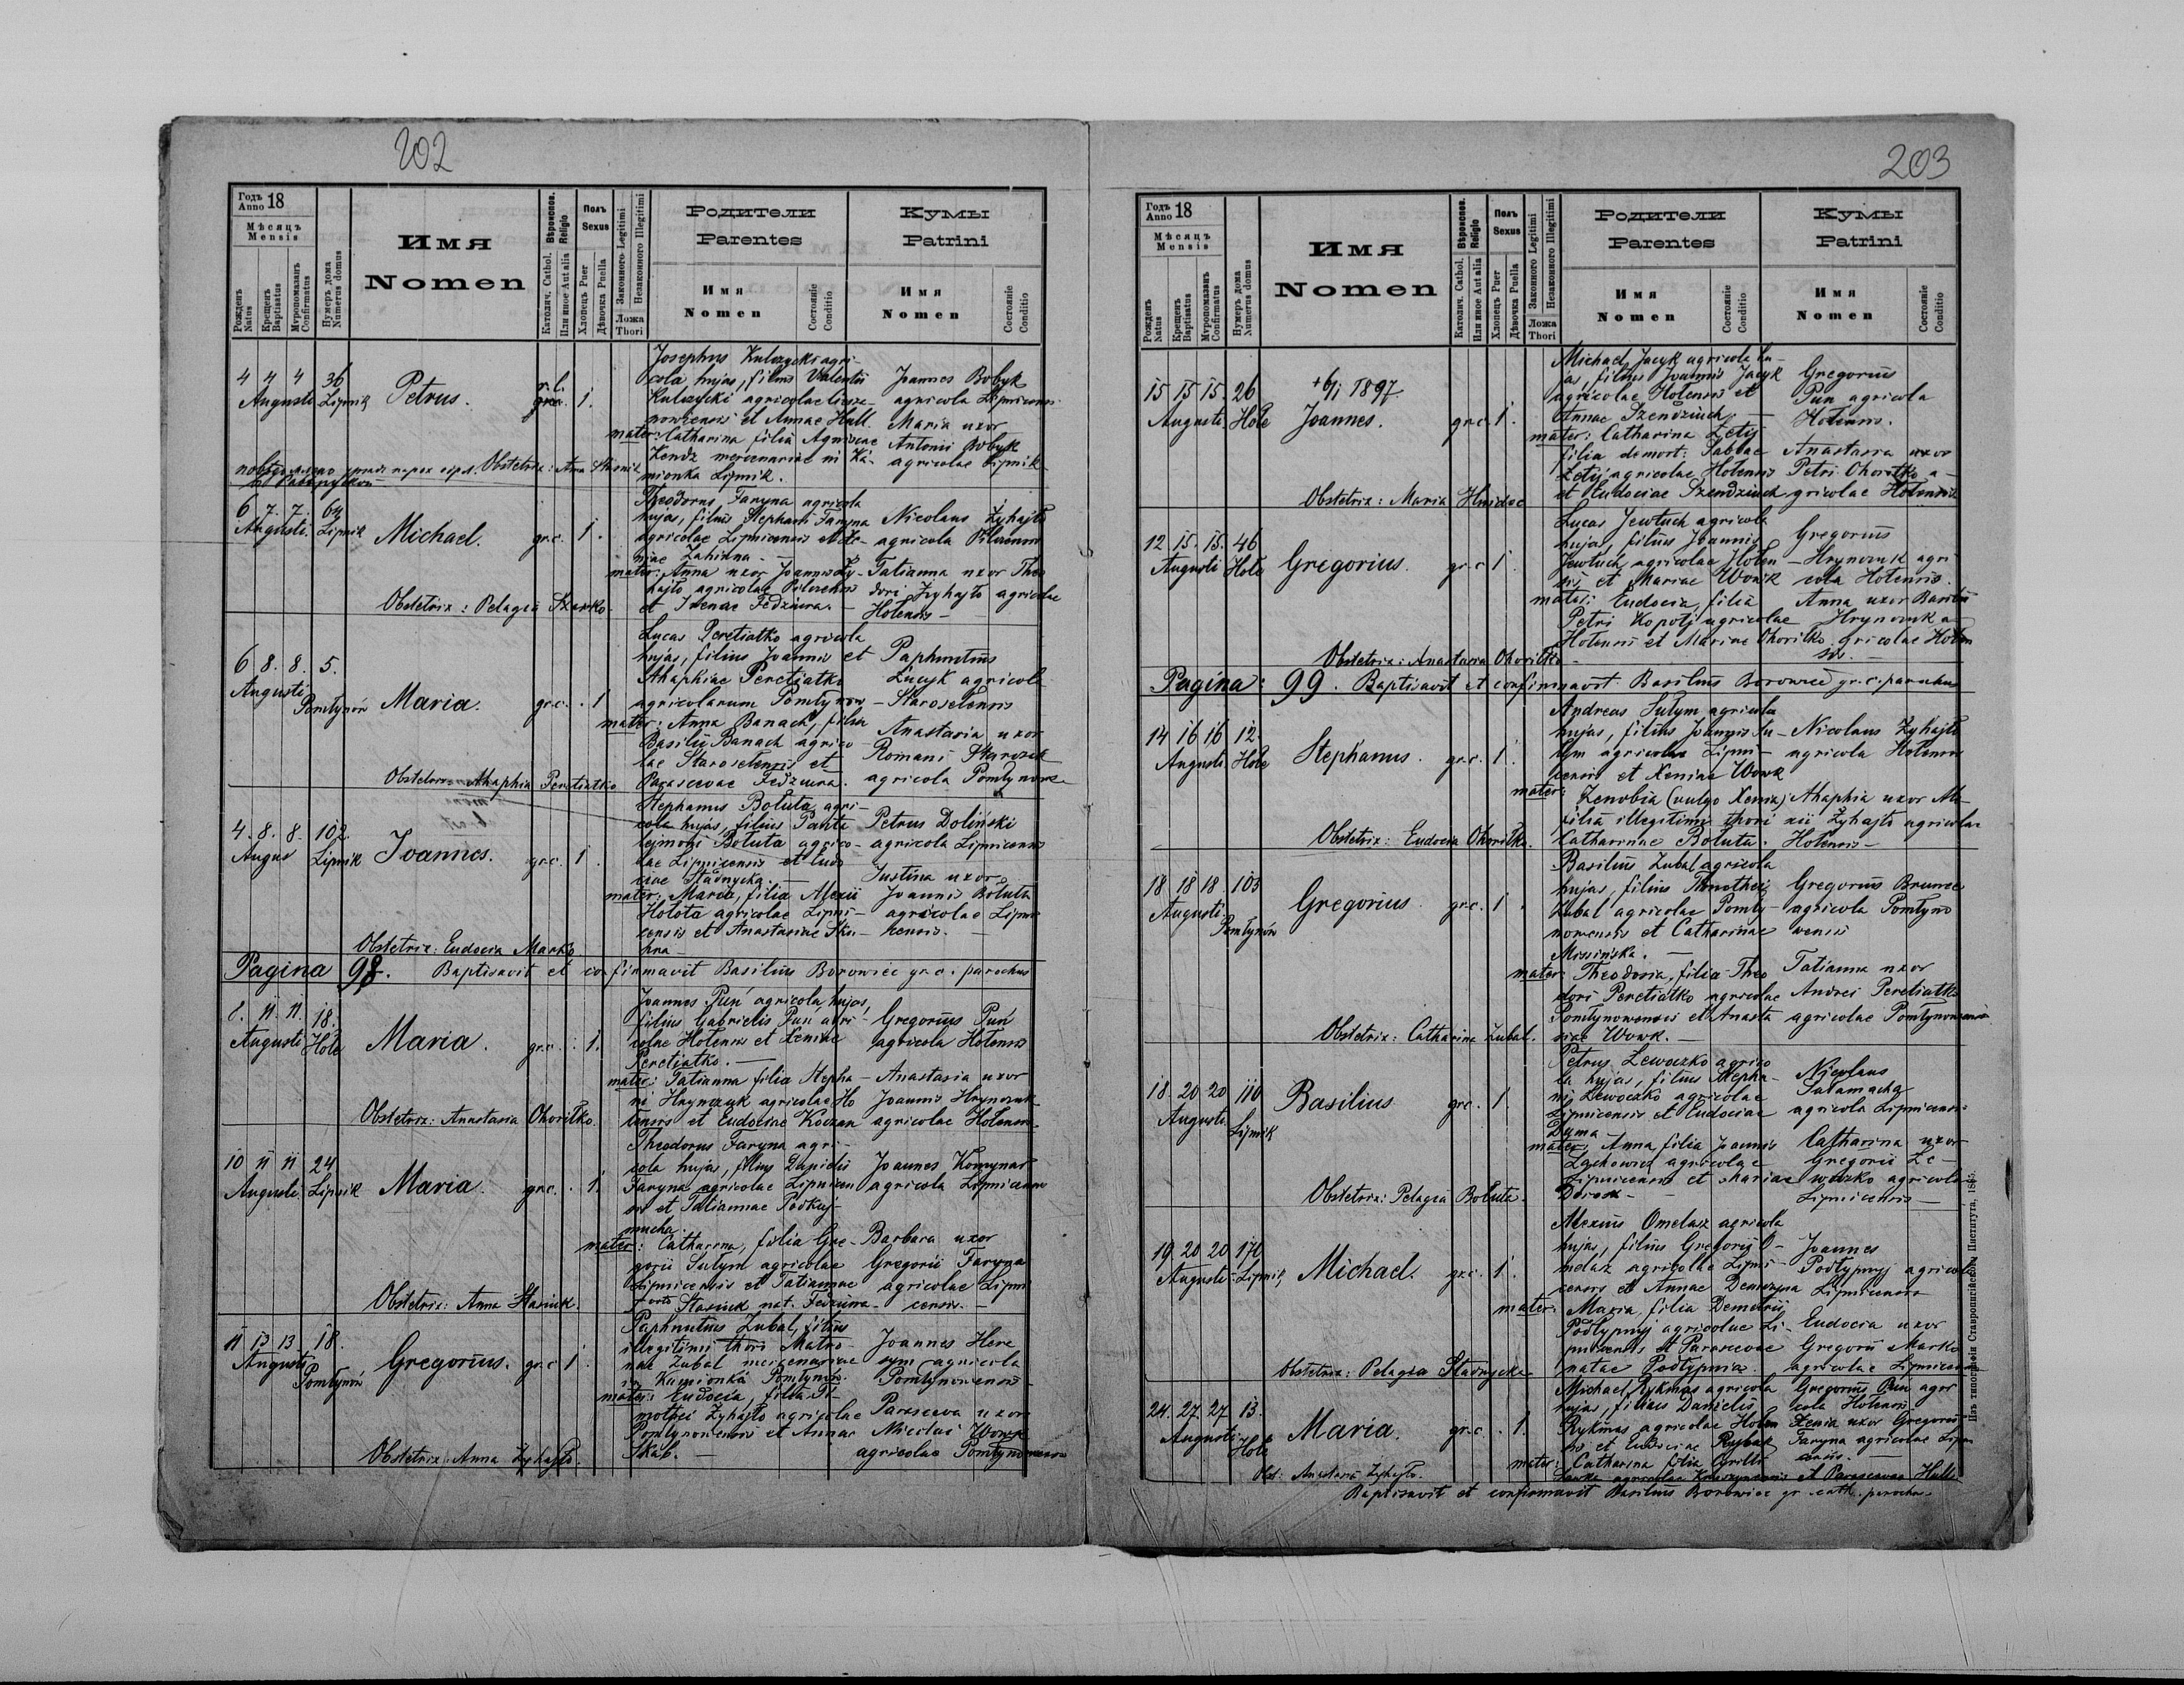 202
Годъ
Anno 18
Мѣсяцъ
Mensis
Рожденъ
Natus
Крещенъ
Baptisatus
Мѵропомазанъ
Confirmatus
Нумеръ дома
Numerus domus
Имя
Nomen
Вѣроиспов.
Religio
Католич. Cathol.
Или иное Aut alia
Полъ
Sexus
Хлопецъ Puer
Дѣвочка Puella
Законного Legitimi
Незаконного Illegitimi
Ложа
Thori
Родители
Parentes
Имя
Nomen
Состояніе
Conditio
Кумы
Patrini
Имя
Nomen
Состояніе
Conditio
4 4 4 36
Augusti Lipnik
Petrus.
r. l.
1.
Josephus Kulczycki agri-
cola hujas, filius Valentii
Kulczycki agricolae
et Annae Hull.
mater: Catharina filia Agnieae
Zendz mercenariae in Ka-
mionka Lipnik.
Joannes Bobyk
agricola Lipnicensis
Maria uxor
Antonii Bobyk
agricolae Lipnik
Obstetrix: Anna Stasiuk
6 7. 7. 64
Augusti. Lipnik
Michael.
gr.c. 1.
Theodorus Faryna agricola
hujas, filius Stephani Faryna
agricolae Lipnicensis et Xe-
niae Zahidna.
mater: Anna uxor Joannis Zy-
hajlo agricolae
et Irenae Fedziura.
Nicolaus Zyhajlo
agricola
Tatianna uxor Theo
dori Zyhajlo agricolae
Holensis
Obstetrix: Pelagia Szawko.
6 8. 8. 5.
Augusti
Pomlynów
Maria.
gr.c. 1
Lucas Peretiatko agricola
hujas, filius Joannis et
Ahaphiae Peretiatko
agricolarum Pomlynow
mater: Anna Banach, filia
Basilii Banach agrico-
lae Staroselensis et
Parascevae Fedziura.
Paphnutius
Lucyk agricola
Staroselensis
Anastasia uxor
Romani Starczuk
agricola Pomlynow
Obstetrix Ahaphia Peretiatko
4. 8. 8. 102.
Augus Lipnik
Joannes.
gr.c. 1
Stephanus Boluta agri-
cola hujas, filius Panta
lejmoni Boluta agrico-
lae Lipnicensis et Eudo
ciae Stadnycka.
mater: Maria, filia Alexii
Holota agricolae Lipni-
censis et Anastasiae Sku-
hra
Petrus Doliński
agricola Lipnicensis
Justina uxor
Joannis Boluta
agricolae Lipni
censis.
Obstetrix: Eudocia Marko.
Pagina 98. Baptisavit et confirmavit Basilius Borowiec gr.c. parochus
8. 11. 11. 18.
Augusti Hole
Maria.
gr.c. 1.
Joannes Puń agricola hujas,
filius Gabrielis Puń agri-
colae Holensis et Xeniae
Peretiatko.
mater: Tatianna filia Stepha-
ni Hrynczuk agricolae Ho
lensis et Eudociae Koczan
Gregorius Puń
agricola Holensis
Anastasia uxor
Joannis Hrynczuk
agricolae Holensis
Obstetrix: Anastasia Ohorilko.
10 11 11 24
Augusti. Lipnik
Maria.
gr.c. 1.
Theodorus Faryna agri-
cola hujas, filius Danielis
Faryna agricolae Lipnicen
sis et Tatiannae Podkuj-
mucha.
mater: Catharina, filia Gre-
gorii Sulym agricolae
Lipnicensis et Tatiannae
Stasiuk nat. Fedziura
Joannes Komynar
agricola Lipnicensis
Barbara uxor
Gregorii Faryna
agricolae Lipni
censis.
Obstetrix: Anna Stasiuk.
11 13 13 18.
Augusti
Pomlynów
Gregorius.
gr.c 1
Paphnutius Zubal, filius
illegitimi thori Matro-
nae Zubal mercenariae
in Kamionka Pomlynów.
mater: Eudocia, filia Ti-
mothei Zyhajlo agricolae
Pomlynowensis et Annae
Skab.
Joannes Here
sym agricola
Pomlynowensis
Parasceva uxor
Nicolai Wowk
agricolae Pomlynowensis
Obstetrix: Anna Zyhajlo.
203
Годъ
Anno 18
Мѣсяцъ
Mensis
Рожденъ
Natus
Крещенъ
Baptisatus
Мѵропомазанъ
Confirmatus
Нумеръ дома
Numerus domus
Имя
Nomen
Вѣроиспов.
Religio
Католич. Cathol.
Или иное Aut alia
Полъ
Sexus
Хлопецъ Puer
Дѣвочка Puella
Законного Legitimi
Незаконного Illegitimi
Ложа
Thori
Родители
Parentes
Имя
Nomen
Состояніе
Conditio
Кумы
Patrini
Имя
Nomen
Состояніе
Conditio
15 15 15. 26
Augusti. Hole
1897
Joannes.
gr.c. 1.
Michael Jacyk agricola hu-
jas, filius Joannis Jacyk
agricolae Holensis et
Annae Szendziuch
mater: Catharina Zetij
filia demort: Sabbae
Zetij agricolae Holensis
et Eudociae Szendziuch
Gregorius
Pun agricola
Holensis.
Anastasia uxor
Petri Ohorilko a-
gricolae Holensis
Obstetrix: Maria Hnidec
12 15. 15. 46
Augusti Hole
Gregorius.
gr.c 1.
Lucas Jewtuch agricola
hujas, filius Joannis
Jewtuch agricolae Holen
sis et Mariae Wowk
mater: Eudocia, filia
Petri Kopotj agricolae
Holensis et Mariae Ohorilko.
Gregorius
Hrynczuk agri
cola Holensis.
Anna uxor Basilii
Hrynczuk a
gricolae Holen
sis.
Obstetrix: Anastasia Ohorilko
Pagina: 99. Baptisavit et confirmavit Basilius Borowiec gr.c. parochus
14 16 16 12.
Augusti Hole
Stephanus.
gr.c. 1.
Andreas Sulym agricola
hujas, filius Joannis Su-
lym agricolae Lipni-
censis et Xeniae Wowk
mater:
Zenobia (vulgo Xenia)
filia illegitimi thori
Catharinae Boluta.
Nicolaus Zyhajlo
agricola Holensis
Ahaphia uxor Ale-
xii Zyhajlo agricolae
Holensis
Obstetrix: Eudocia Ohorilko.
18 18 18. 103
Augusti.
Pomlynów
Gregorius.
gr.c. 1.
Basilius Zubal agricola
hujas, filius Timothei
Zubal agricolae Pomly-
nowensis et Catharinae
Misińska.
mater: Theodosia, filia Theo
dori Peretiatko agricolae
Pomlynowensis et Anasta
siae Wowk.
Gregorius Brunec
agricola Pomlyno
wensis
Tatianna uxor
Andrei Peretiatko
agricolae Pomlynowensis
Obstetrix: Catharina Zubal.
18. 20 20 110
Augusti.
Lipnik
Basilius
gr.c. 1.
Petrus Lewoczko agrico
la hujas, filius Stepha-
ni Lewoczko agricolae
Lipnicensis et Eudociae
Duma
mater: Anna filia Joannis
Lachowicz agricolae
Lipnicensis et Mariae
Dorosz
Nicolaus
Salamacha
agricola Lipnicensis
Catharina uxor
Gregorii Le-
woczko agricolae
Lipnicensis
Obstetrix: Pelagia Boluta.
19. 20 20 170
Augusti. Lipnik
Michael.
gr.c. 1.
Alexius Omelaz agricola
hujas, filius Gregorii O-
melaz agricolae Lipni-
censis et Annae Demczyna
mater: Maria, filia Demetrii
Podlypnyj agricolae Li-
pnicensis et Parascevae
natae Podlypna.
Joannes
Podlypnyj agricola
Lipnicensis
Eudocia uxor
Gregorii Marko
agricolae Lipnicensis
Obstetrix: Pelagia Stadnycka
24. 27. 27 13.
Augusti.
Hole
Maria.
gr.c. 1.
Michael Rykmas agricola
hujas, filius Danielis
Rykmas agricolae Holen
sis et Eudociae Rybak
mater: Catharina filia Cyrilli
agricolae et Parascevae Hull
Gregorius Puń agri
cola Holensis
Xenia uxor Gregorii
Faryna agricolae Lipni
censis.
Obst: Anastasia Zyhajlo.
Baptisavit et confirmavit Basilius Borowiec gr. cath. parochus
Изъ типографіи Ставропигійскои Института, 188